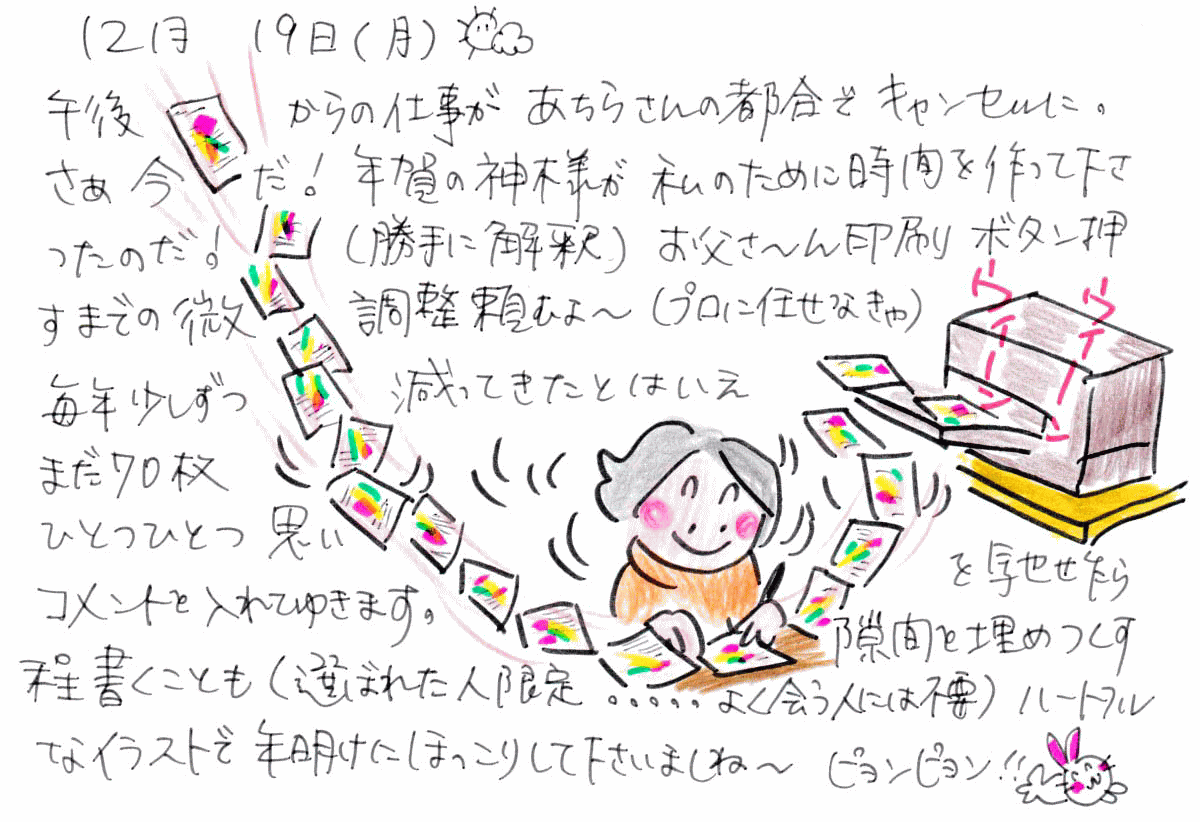 12月 19日(月)
午後 からの仕事が あちらさんの都合で キャンセルに。
さぁ 今 だ! 年賀の神様が 私のために時間を作って下さ
ったのだ! (勝手に解釈) お父さ〜ん 印刷 ボタン押
すまでの微 調整 頼むよ〜 (プロに任せなきゃ)
ウィーン ウィーン
毎年少しずつ 減ってきたとはいえ
まだ70枚
ひとつひとつ 思い を馳せたら
コメントを入れてゆきます。 隙間を埋めつくす
程書くことも (選ばれた人限定 ・・・・・よく会う人には不要) ハートフル
なイラストで 年明けにほっこりして下さいましね〜 ピョンピョン!!